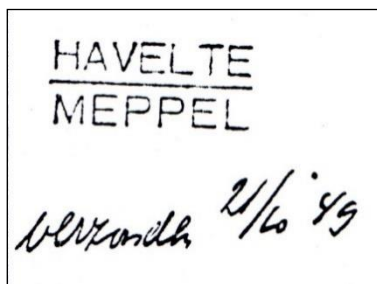 HAVELTE
MEPPEL
verzonden 21/10 '49